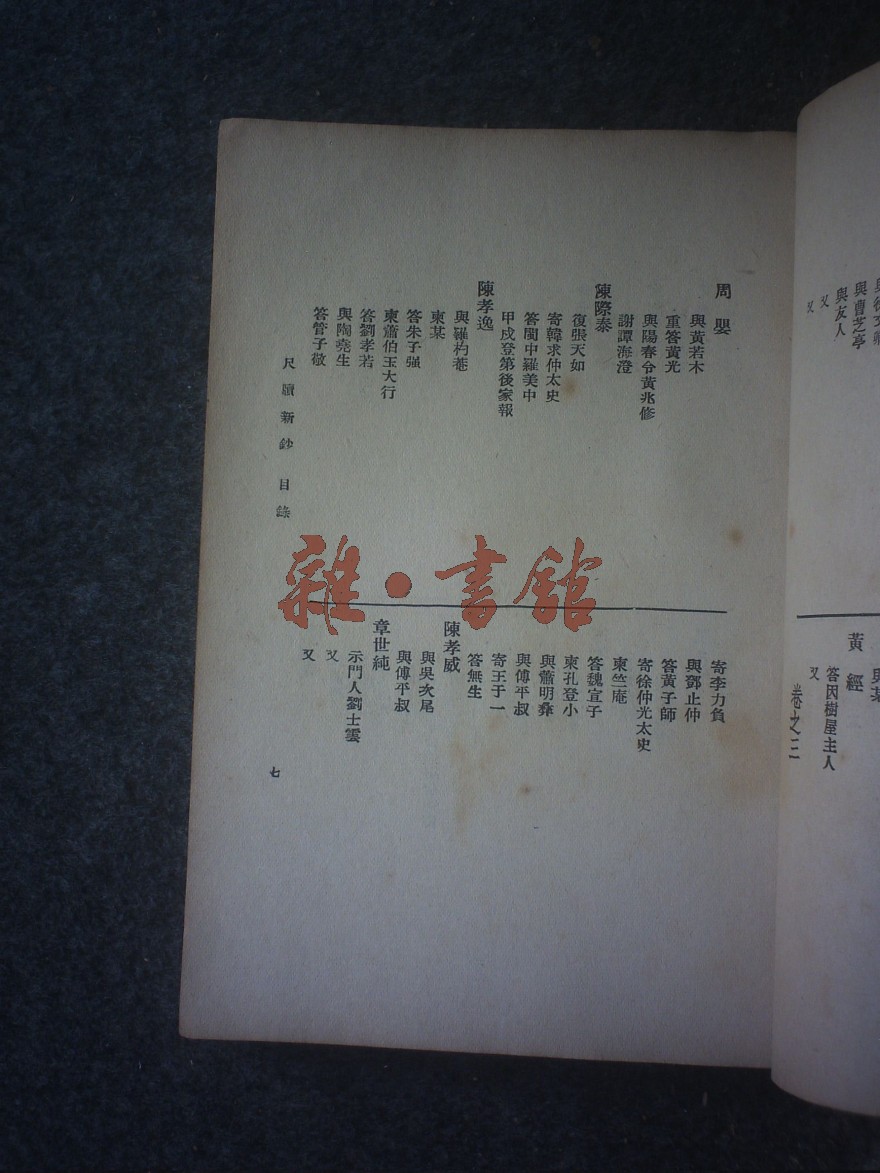 與曹芝亭
與友人
又
又
黃經
答因樹屋主人
又
卷之三
周嬰
與黃若木
重答黃光
與陽春令黃兆修
謝譚海澄
陳際泰
復張天如
寄韓求仲太史
答閩中羅美中
甲戌登第後家報
陳孝逸
與羅杓菴
柬某
答朱子強
柬蕭伯玉大行
答劉孝若
與陶堯生
答管子敬
寄李力負
與鄧止仲
答黃子師
寄徐仲光太史
柬竺庵
答魏宣子
柬孔登小
與蕭明彝
與傅平叔
寄王于一
答無生
陳孝威
與吳次尾
與傅平叔
章世純
示門人劉士雲
又
又
尺牘新鈔 目錄
七
雜·書館